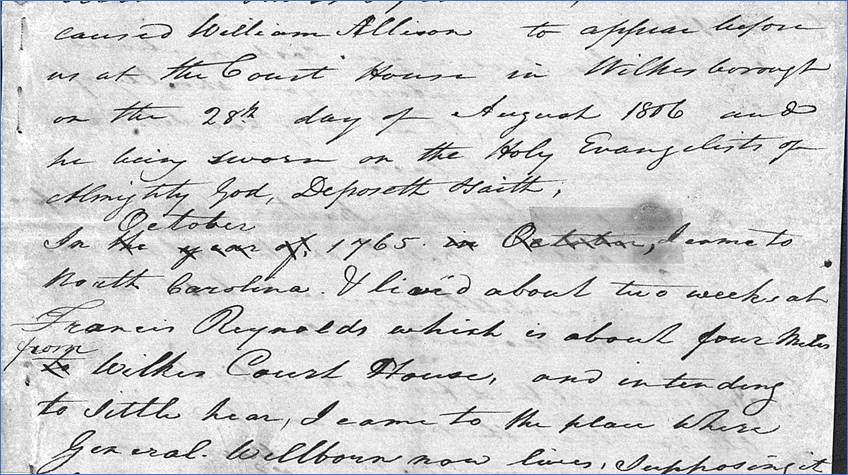 caused William Allison to appear before
us at the Court House in Wilkesborough
on the 28th day of August 1806 and
he being sworn on the Holy Evangelists of
Almighty God, Deposeth & saith,
October
In the year of, 1765. in October, I came to
North Carolina. & liv'd about two weeks at
Francis Reynolds which is about four Miles
from
to Wilkes Court House, and intending
to sittle hear, I came to the place where
General Wellborn now lives, supposing it